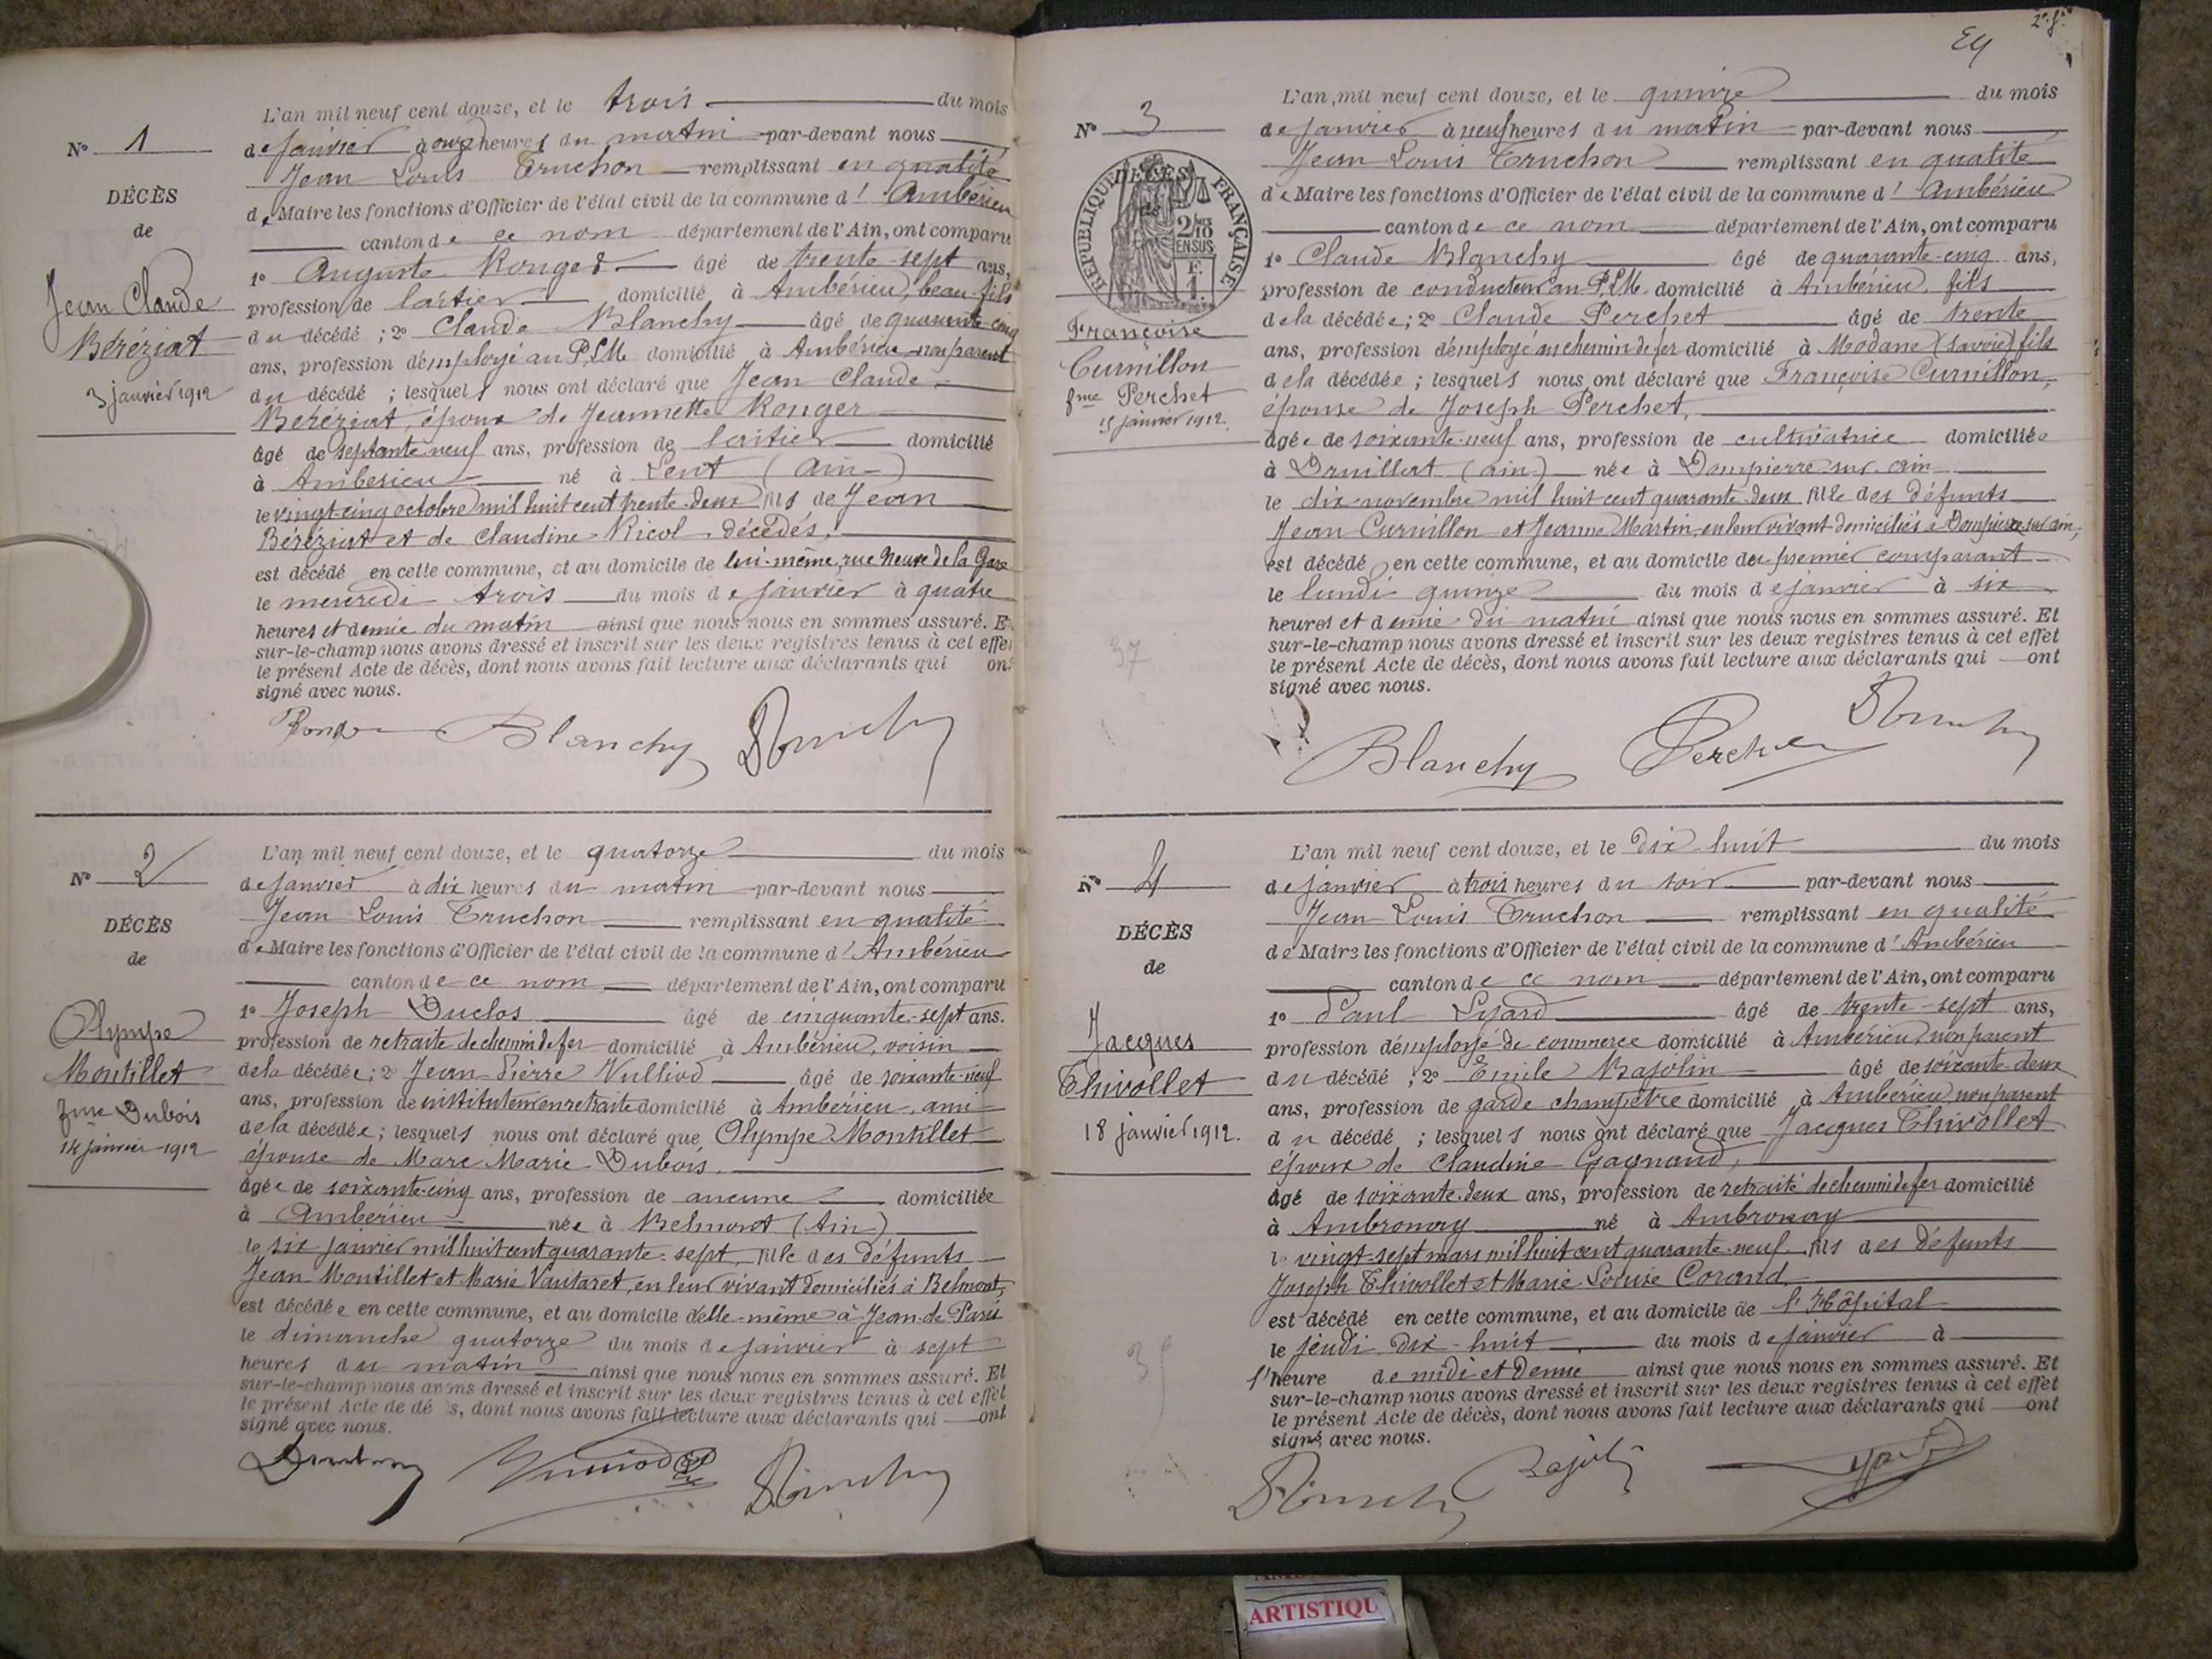 L'an mil neuf cent douze, et le trois du mois
N° 1
de janvier à onze heures du matin par-devant nous
Jean Louis Truchon remplissant en qualité
de Maire les fonctions d'Officier de l'état civil de la commune d' Ambérieu
canton de ce nom département de l'Ain, ont comparu
1° Auguste Ronger âgé de trente-sept ans,
profession de laitier domicilié à Ambérieu, beau-fils
du décédé ; 2° Claude Blanchy âgé de quarante-cinq
ans, profession d'employé au P.L.M. domicilié à Ambérieu non parent
du décédé ; lesquels nous ont déclaré que Jean Claude
Béréziat, époux de Jeannette Ronger
âgé de septante neuf ans, profession de laitier domicilié
à Ambérieu né à Lent (Ain)
le vingt-cinq octobre mil huit cent trente-deux fils de Jean
Béréziat et de Claudine Nicol décédés,
est décédé en cette commune, et au domicile de lui-même, rue Neuve de la Gare
le mercredi trois du mois de janvier à quatre
heures et demie du matin ainsi que nous nous en sommes assuré. E
sur-le-champ nous avons dressé et inscrit sur les deux registres tenus à cet effet
le présent Acte de décès, dont nous avons fait lecture aux déclarants qui ont
signé avec nous.
DÉCÈS
de
Jean Claude
Béréziat
3 janvier 1912
Blanchy
L'an mil neuf cent douze, et le quatorze du mois
N° 2
de janvier à dix heures du matin par-devant nous
Jean Louis Truchon remplissant en qualité
de Maire les fonctions d'Officier de l'état civil de la commune d' Ambérieu
canton de ce nom département de l'Ain, ont comparu
1° Joseph Duclos âgé de cinquante-sept ans.
profession de retraité de chemin de fer domicilié à Ambérieu, voisin
de la décédée ; 2° Jean-Pierre Vulliod âgé de soixante-neuf
ans, profession de instituteur en retraite domicilié à Ambérieu, ami
de la décédée ; lesquels nous ont déclaré que Olympe Montillet
épouse de Marc Marie Dubois,
âgée de soixante-cinq ans, profession de aucune domiciliée
à Ambérieu née à Belmont (Ain)
le six janvier mil huit cent quarante-sept, fille des défunts
Jean Montillet et Marie Vautaret, en leur vivant domiciliés à Belmont,
est décédée en cette commune, et au domicile d'elle-même à Jean-de-Paris
le dimanche quatorze du mois de janvier à sept
heures du matin ainsi que nous nous en sommes assuré. Et
sur-le-champ nous avons dressé et inscrit sur les deux registres tenus à cet effet
le présent Acte de décès, dont nous avons fait lecture aux déclarants qui ont
signé avec nous.
DÉCÈS
de
Olympe
Montillet
fme Dubois
14 janvier 1912
Vulliod
L'an mil neuf cent douze, et le quinze du mois
N° 3
de janvier à neuf heures du matin par-devant nous
Jean Louis Truchon remplissant en qualité
de Maire les fonctions d'Officier de l'état civil de la commune d' Ambérieu
canton de ce nom département de l'Ain, ont comparu
1° Claude Blanchy âgé de quarante-cinq ans,
profession de conducteur au P.L.M. domicilié à Ambérieu, fils
de la décédée ; 2° Claude Perchet âgé de trente
ans, profession d'employé au chemin de fer domicilié à Modane (Savoie) fils
de la décédée ; lesquels nous ont déclaré que Françoise Curnillon,
épouse de Joseph Perchet,
âgée de soixante-neuf ans, profession de cultivatrice domiciliée
à Druillat (Ain) née à Dompierre sur Ain
le dix novembre mil huit cent quarante-deux fille des défunts
Jean Curnillon et Jeanne Martin, en leur vivant domiciliés à Dompierre sur Ain,
est décédé en cette commune, et au domicile du premier comparant
le lundi quinze du mois de janvier à six
heures et demie du matin ainsi que nous nous en sommes assuré. Et
sur-le-champ nous avons dressé et inscrit sur les deux registres tenus à cet effet
le présent Acte de décès, dont nous avons fait lecture aux déclarants qui ont
signé avec nous.
RÉPUBLIQUE FRANÇAISE
DÉCÈS
de
2/10
EN SUS
F.
1.
Françoise
Curnillon
fme Perchet
15 janvier 1912
37
Blanchy Perchet
L'an mil neuf cent douze, et le dix-huit du mois
N° 4
de janvier à trois heures du soir par-devant nous
Jean Louis Truchon remplissant en qualité
de Maire les fonctions d'Officier de l'état civil de la commune d' Ambérieu
canton de ce nom département de l'Ain, ont comparu
1° Paul Lyard âgé de trente-sept ans,
profession d'employé de commerce domicilié à Ambérieu non parent
du décédé ; 2° Emile Bajolin âgé de soixante-deux
ans, profession de garde champêtre domicilié à Ambérieu, non parent
du décédé ; lesquels nous ont déclaré que Jacques Thivollet
époux de Claudine Gagnaud,
âgé de soixante-deux ans, profession de retraité de chemin de fer domicilié
à Ambronay né à Ambronay
le vingt-sept mars mil huit cent quarante-neuf fils des défunts
Joseph Thivollet et Marie Louise Corand
est décédé en cette commune, et au domicile de l'Hôpital
le jeudi dix-huit du mois de janvier à
l'heure de midi et demie ainsi que nous nous en sommes assuré. Et
sur-le-champ nous avons dressé et inscrit sur les deux registres tenus à cet effet
le présent Acte de décès, dont nous avons fait lecture aux déclarants qui ont
signé avec nous.
DÉCÈS
de
Jacques
Thivollet
18 janvier 1912.
ARTISTIQU